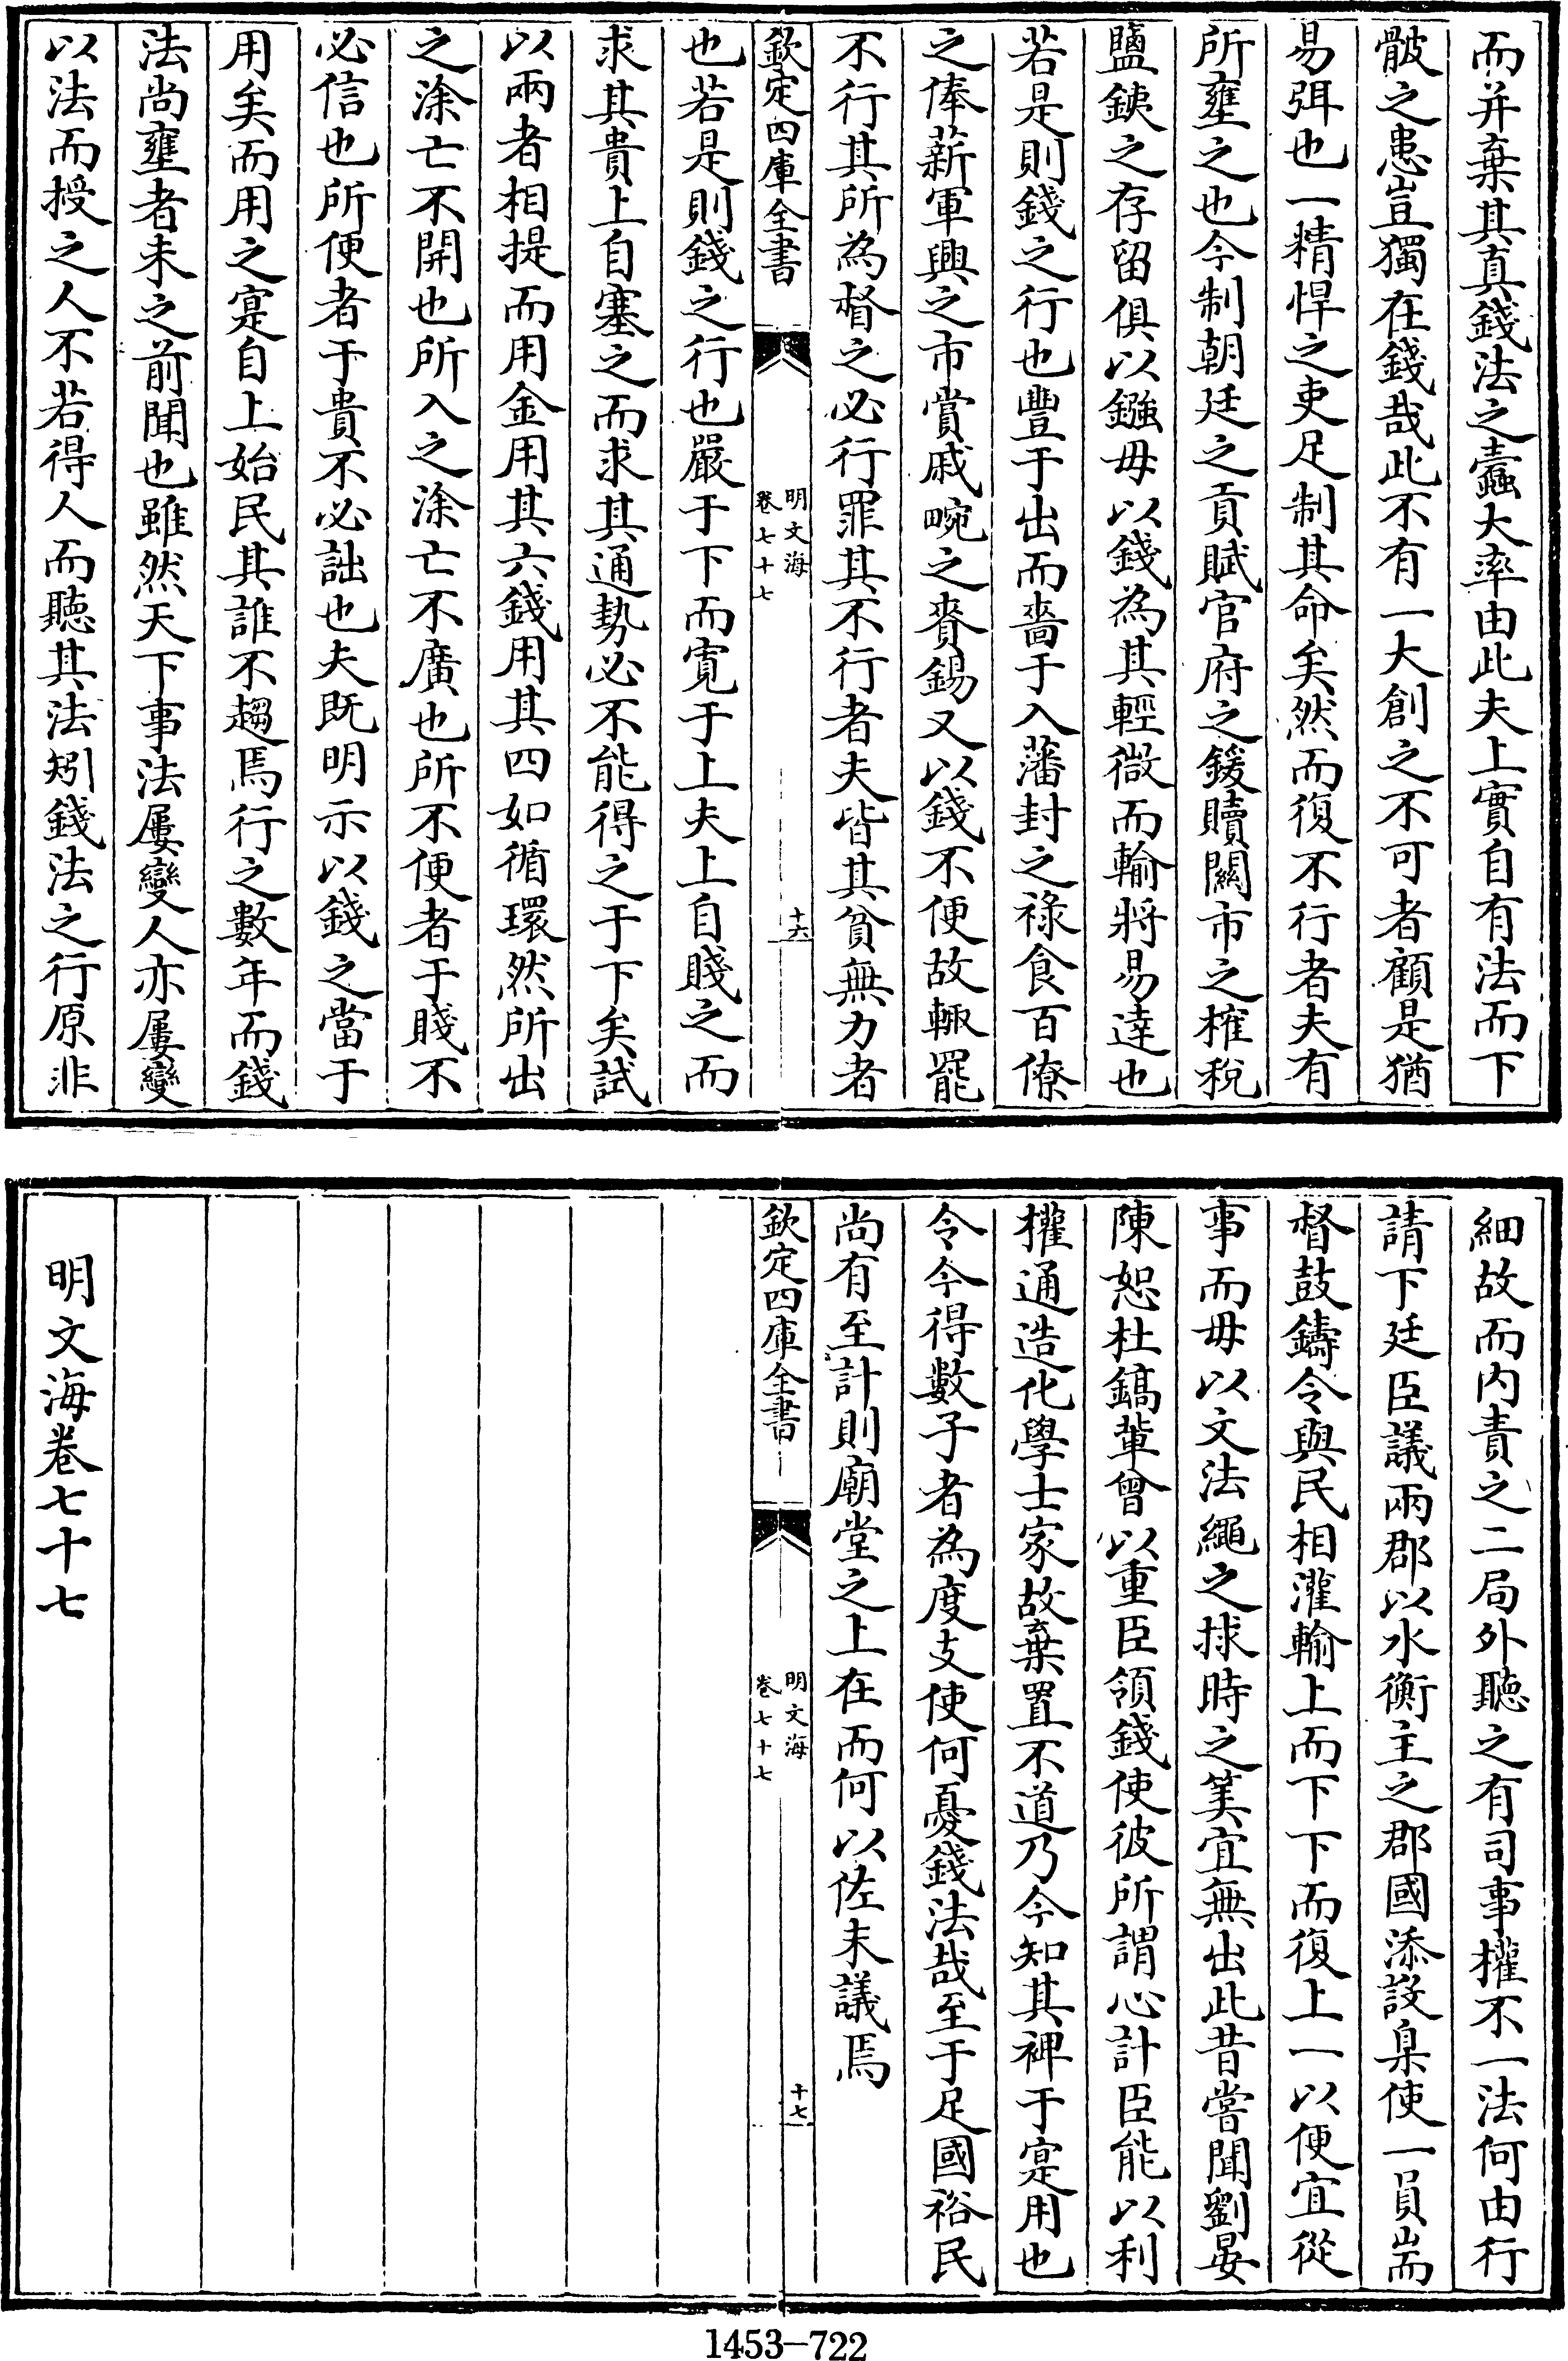 而并棄其真錢法之蠧大率由此夫上實自有法而下
骰之患豈獨在錢哉此不有一大創之不可者顧是猶
易弭也一精悍之吏足制其命矣然而復不行者夫有
所壅之也今制朝廷之貢賦官府之鍰贖關市之榷稅
鹽鐵之存留俱以鏹毋以錢為其輕微而輸將易達也
若是則錢之行也豐于出而嗇于入藩封之祿食百僚
之俸薪軍興之市賞戚畹之賚錫又以錢不便故輙罷
不行其所為督之必行罪其不行者夫皆其貧無力者
欽定四庫全書
明文海
卷七十七
十六
也若是則錢之行也嚴于下而寛于上夫上自賤之而
求其貴上自塞之而求其通勢必不能得之于下矣試
以兩者相提而用金用其六錢用其四如循環然所出
之涂亡不開也所入之涂亡不廣也所不便者于賤不
必信也所便者于貴不必詘也夫既明示以錢之當于
用矣而用之寔自上始民其誰不趨焉行之數年而錢
法尚壅者未之前聞也雖然天下事法屢變人亦屢變
以法而授之人不若得人而聽其法矧錢法之行原非
細故而内責之二局外聽之有司事權不一法何由行
請下廷臣議兩郡以水衡主之郡國添設臬使一員耑
督鼓鑄令與民相灌輸上而下下而復上一以便宜從
事而毋以文法繩之捄時之筴宜無出此昔嘗聞劉晏
陳恕杜鎬輩曾以重臣領錢使彼所謂心計臣能以利
權通造化學士家故棄置不道乃今知其裨于寔用也
令今得數子者為度支使何憂錢法哉至于足國裕民
尚有至計則廟堂之上在而何以佐末議焉
欽定四庫全書
明文海
卷七十七
十七
明文海卷七十七
1453-722